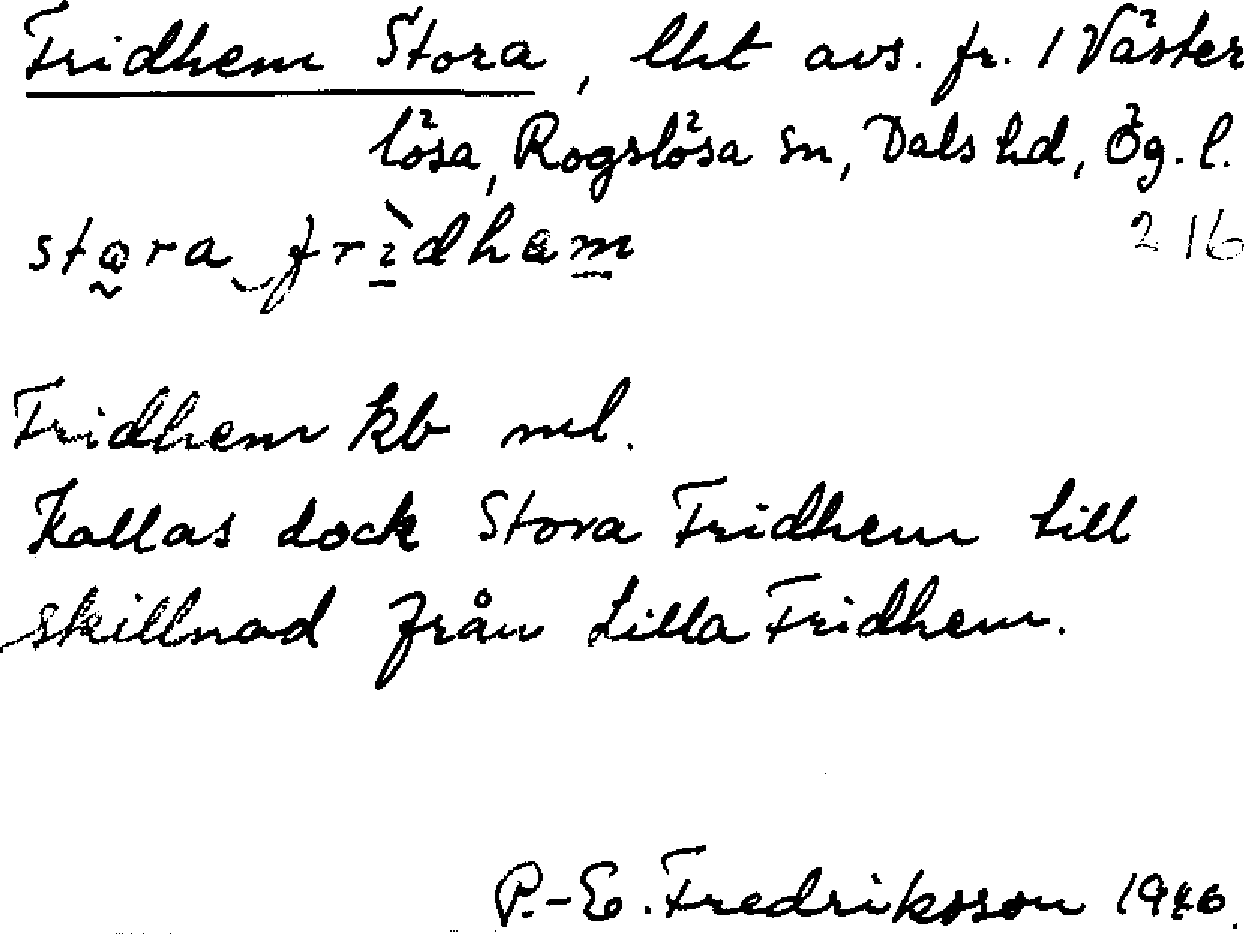 Fridhem Stora, lht avs. fr. 1 Väster
lösa, Rogslösa sn, Dals hd, Ög. l.
stora fridhem
216
Fridhem kb
Kallas dock Stora Fridhem till
skillnad från Lilla Fridhem.
P.-E. Fredriksson 1946.